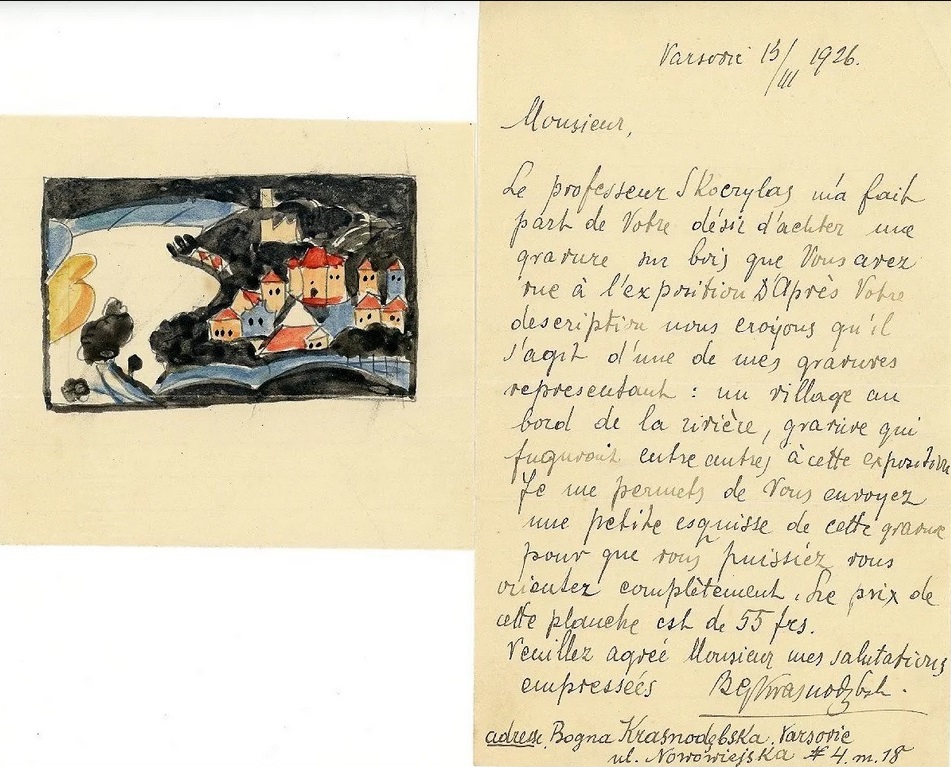 Varsovie 15/III 1926.
Monsieur,
Le professeur Skoczylas m'a fait
part de Votre désir d'achter une
gravure sur bois que Vous avez
vue à l'exposition D'Après Votre
description nous croyons qu'il
s'agit d'une de mes gravures
representant : un village au
bord de la rivière, gravure qui
fuguroit entre autres à cette exposition
Je me permets de Vous envoyez
une petite esquisse de cette gravure
pour que vous puissiez vous
orientez complètement. Le prix de
cette planche est de 55 frs.
Veuillez agreé Monsieur mes salutations
empressées B Krasnodębsk.
adresse Bogna Krasnodębska. Varsovie
ul. Nowowiejska # 4. m. 18